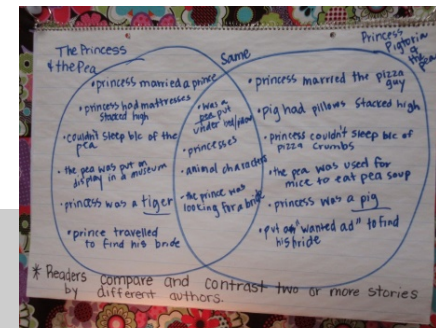 The Princess
& the Pea
• princess married a prince
• princess had mattresses
stacked high
• couldn't sleep b/c of the
pea
• the pea was put on
display in a museum
• princess was a tiger
• prince travelled
to find his bride
Same
• was a
pea put
under bed/
• princesses
• animal characters
• the prince was
looking for a bride
Princess
Pigtoria
& the
Pea
• princess married the pizza
guy
• pig had pillows stacked high
• princess couldn't sleep b/c of
pizza crumbs
• the pea was used for
mice to eat pea soup
• princess was a pig
• put "wanted ad" to find
his bride
* Readers compare and contrast two or more stories
by different authors.